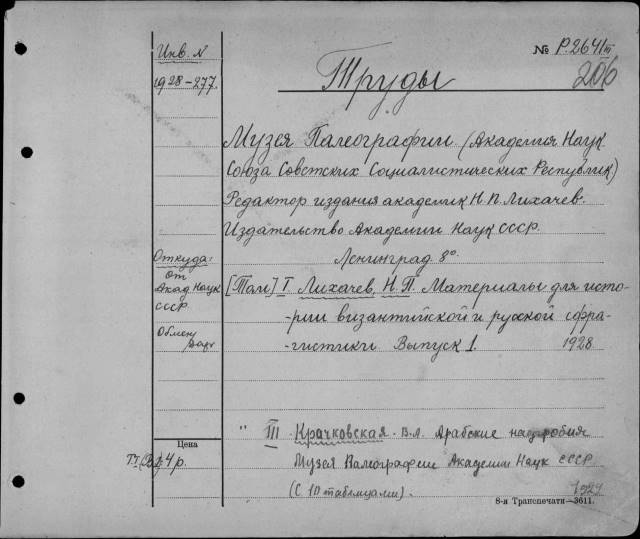 Инв. N
№ Р.2641 III
206
1928-277.
Труды
Музея Палеографии (Академия Наук
Союза Советских Социалистических Республик)
Редактор издания академик Н.П. Лихачев.
Издательство Академии Наук СССР.
Ленинград 8°.
Откуда:
от
Акад Наук
СССР
Обмен
[Том] I Лихачев, Н.П. Материалы для исто-
-рии византийской и русской сфра-
-гистики Выпуск 1. 1928
" III Крачковская В.Л. Арабские надгробия
Музея Палеографии Академии Наук СССР
(С 10 таблицами). 1929
Цена
4 р.
8-я Транспечати—3611.